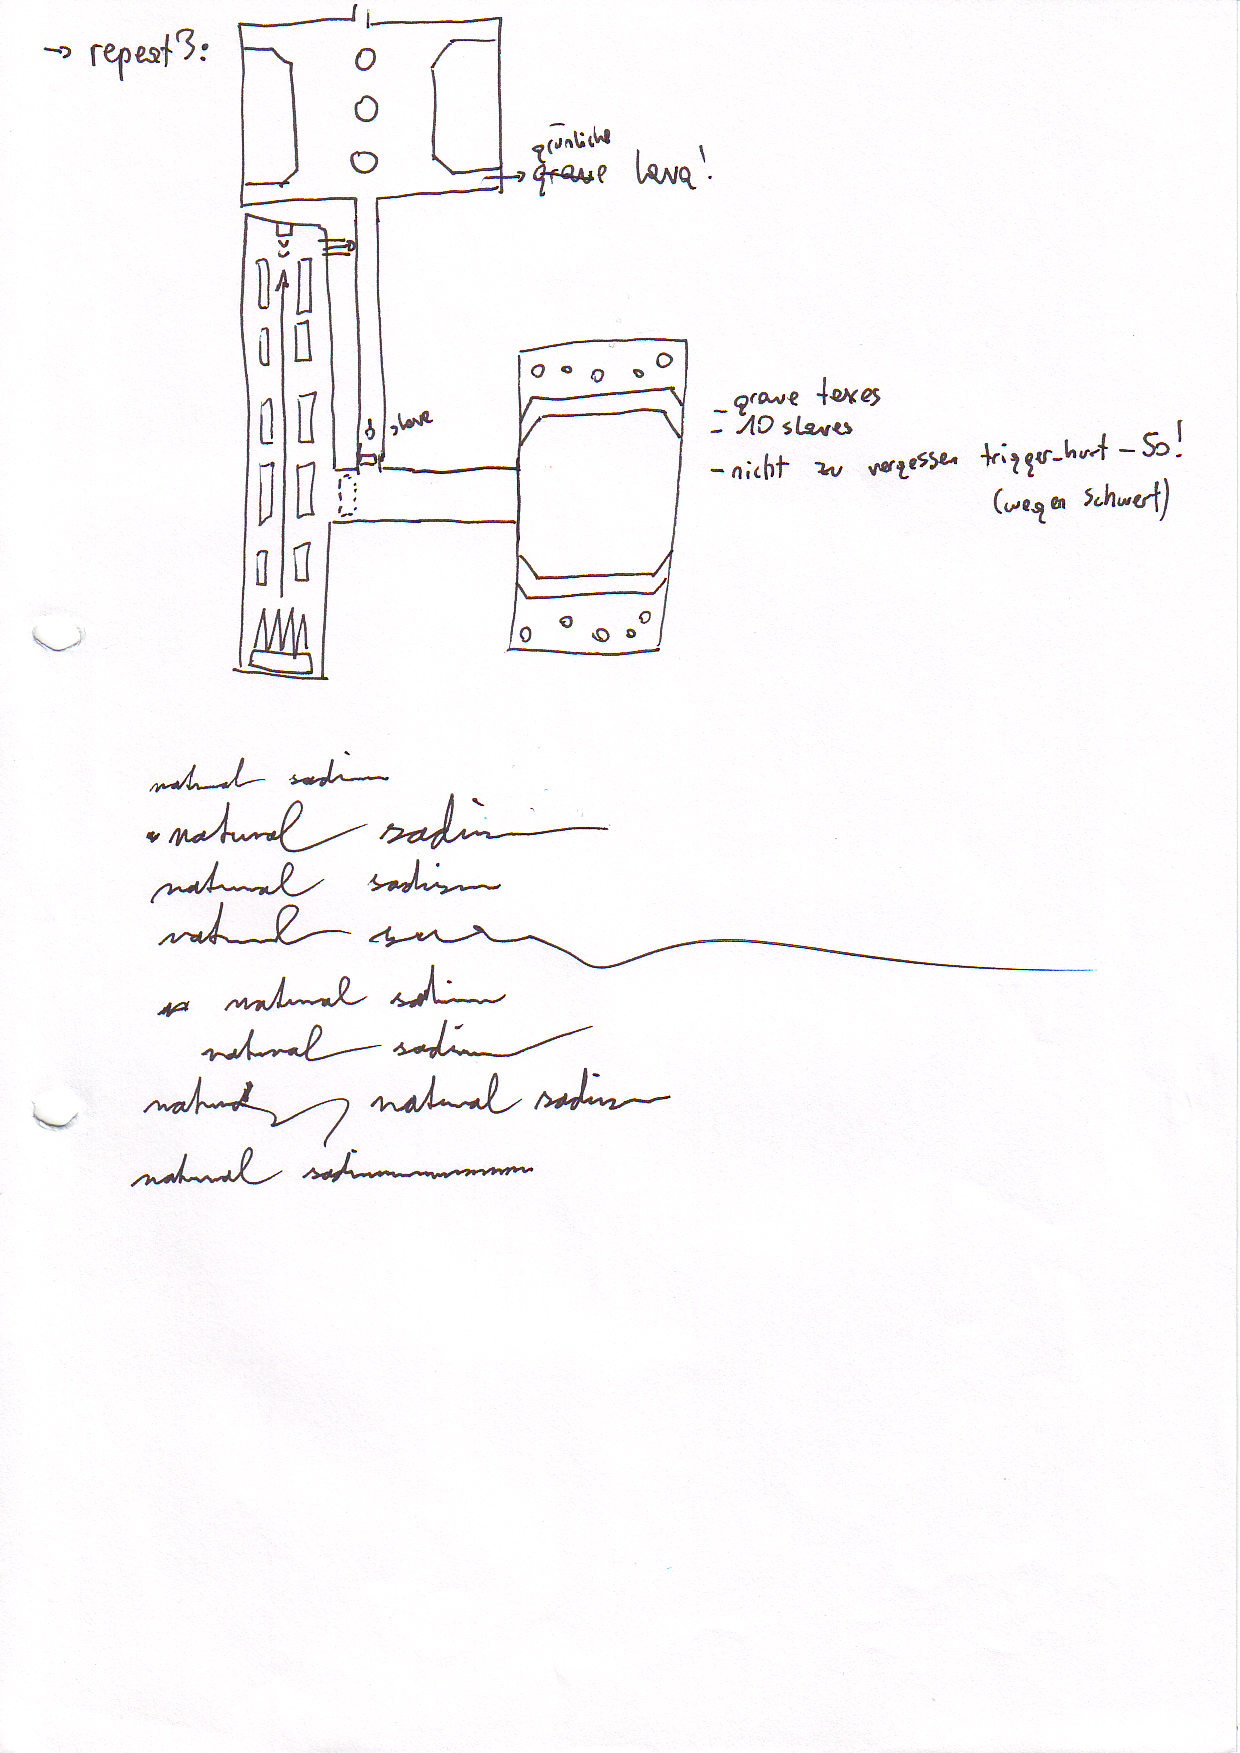 → repeat3:
grünliche
graue lava!
slave
- graue texes
- 10 slaves
- nicht zu vergessen trigger_hurt - 50!
(wegen Schwert)
natural sadism
natural sadism
natural sadism
natural
natural sadism
natural sadism
natural natural sadism
natural sadism